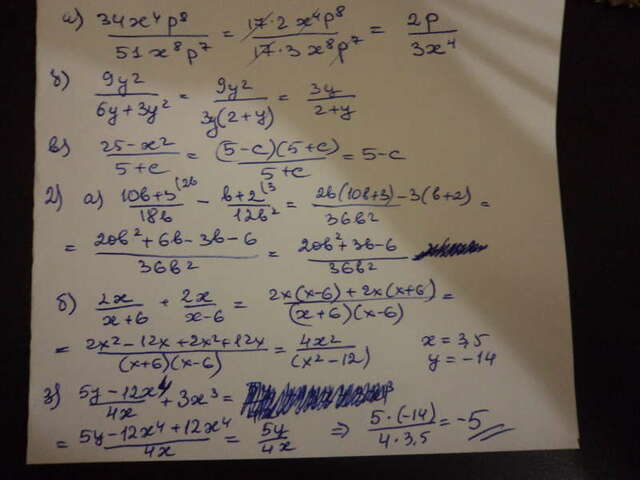 а) 34x⁴p⁸/51x⁸p⁷ = 17·2 x⁴p⁸/17·3 x⁸p⁷ = 2p/3x⁴
б) 9y²/6y+3y² = 9y²/3y(2+y) = 3y/2+y
в) 25-x²/5+c = (5-c)(5+c)/5+c = 5-c
2) а) 10в+3⁽²ᵇ/18в - в+2⁽³/12в² = 2в(10в+3)-3(в+2)/36в² =
= 20в²+6в-3в-6/36в² = 20в²+3в-6/36в²
б) 2x/x+6 + 2x/x-6 = 2x(x-6)+2x(x+6)/(x+6)(x-6) =
= 2x²-12x+2x²+12x/(x+6)(x-6) = 4x²/(x²-12) x = 3,5 y = -14
3) 5y-12x⁴/4x + 3x³ =
= 5y-12x⁴+12x⁴/4x = 5y/4x ⇒ 5·(-14)/4·3,5 = -5